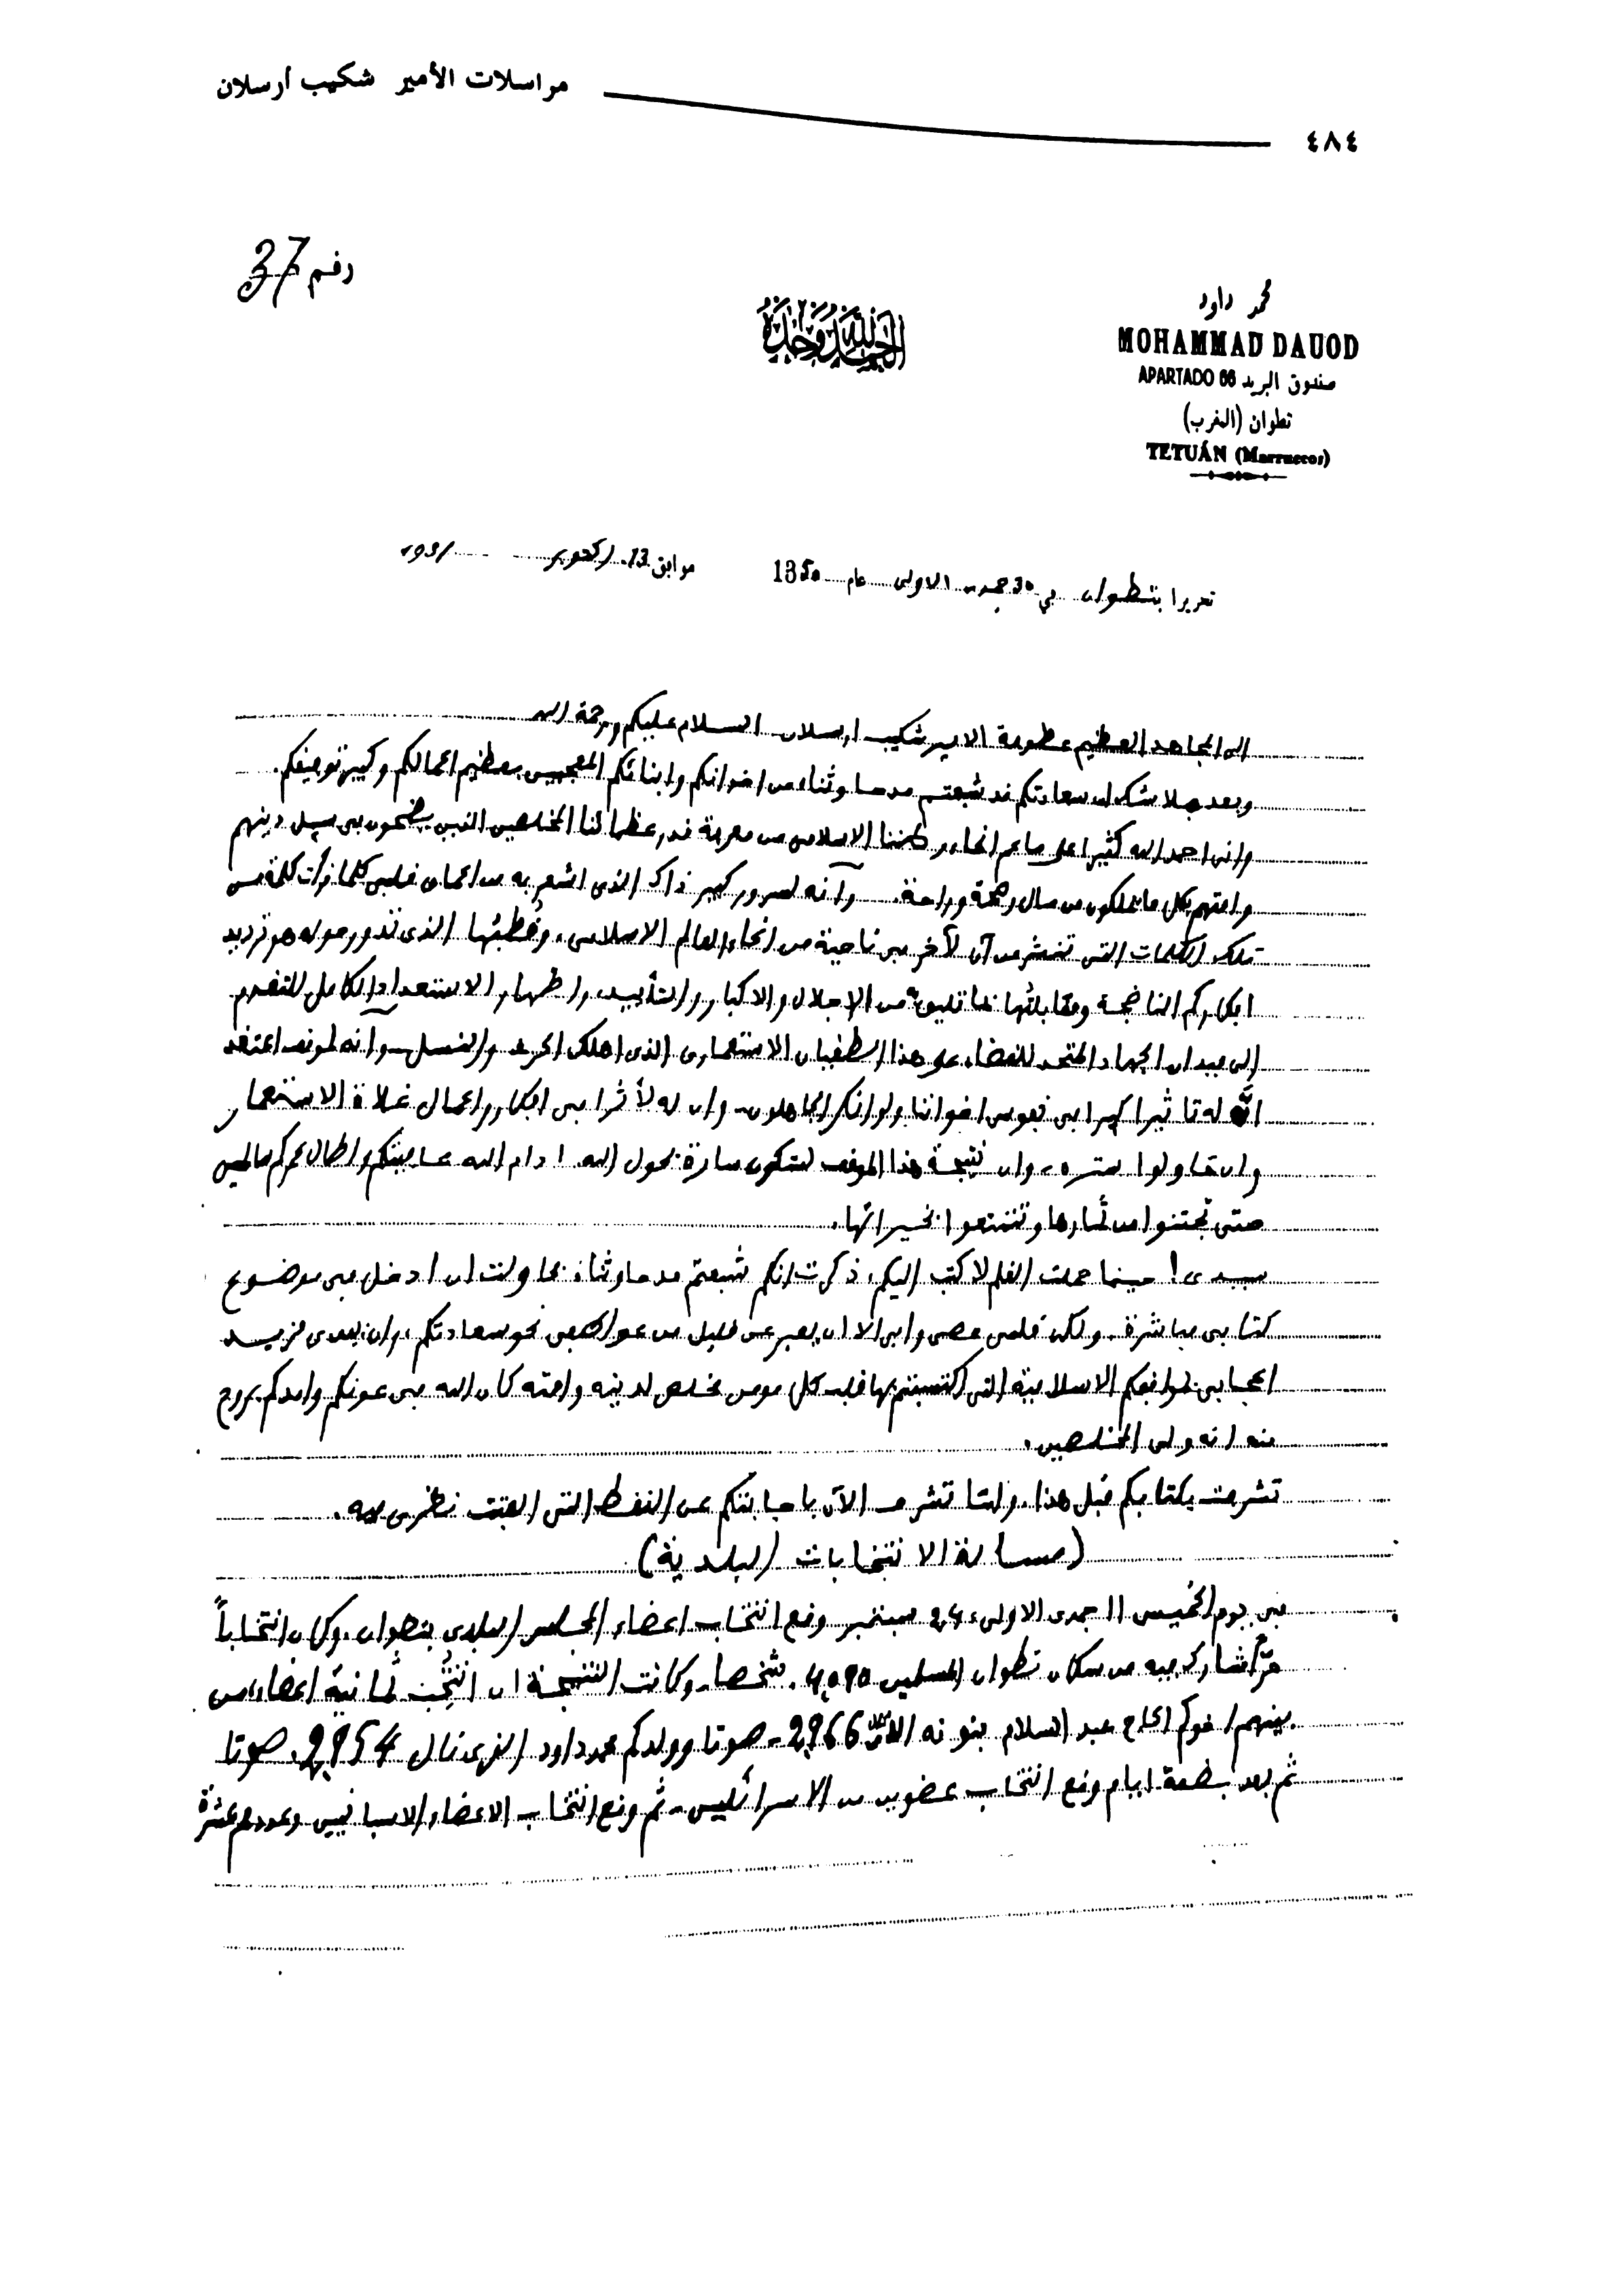 مراسلات الأمير شكيب أرسلان
٤٨٤
رقم 37
محمد داود
MOHAMMAD DAUOD
صندوق البريد APARTADO 66
تطوان (المغرب)
TETUÁN (Marruecos)
الحمد لله وحده
تحريرا بتطوان في 30 جمدى الاولى عام 1350 موافق 13 اكتوبر 1931
الى المجاهد العظيم عطوفة الامير شكيب ارسلان السلام عليكم ورحمة الله
وبعد فلا شك ان سعادتكم قد شبعتم مدحا وثناء من اخوانكم وابنائكم المعجبين بعظيم اعمالكم وكبير توفيقكم.
وانى احمد الله كثيرا على ما عم انحاء وطننا الاسلامى من معرفة قدر عظمائنا المخلصين الذين يضحون فى سبيل دينهم
وامتهم بكل ما يملكون من مال وصحة وراحة. وانه لسرور كبير ذاك الذى اشعر به من اعماق قلبى كلما قرأت كلمة من
تلك الكلمات التى تنشر من آن لآخر فى ناحية من انحاء العالم الاسلامى، وقطبها الذى تدور حوله هو ترديد
افكاركم الناضجة ومقابلتها بما تليق به من الإجلال والاكبار والتأييد، واظهار الاستعداد الكامل للتقدم
إلى ميدان الجهاد المتحد للقضاء على هذا الطغيان الاستعمارى الذى اهلك الحرث والنسل - وانه لموقف اعتقد
انّ له تاثيرا كبيرا فى نفوس اخواننا ولو انكر الجاهلون - وان له لأثرا فى افكار واعمال غلاة الاستعمار
وان حاولوا ستره - وان نتيجة هذا الموقف لتكون سارة بحول الله. ادام الله عافيتكم واطال عمركم سالمين
حتى تجتنوا من ثمارها وتتمتعوا بخيراتها.
سيدى! حينما حملت القلم لاكتب اليكم، ذكرت انكم شبعتم مدحا وثناء فحاولت ان ادخل فى موضوع
كتابى مباشرة. ولكن قلمى عصى وابى الا ان يعبر عن قليل من عواطفى نحو سعادتكم، وان يبدى مزيد
اعجابى بمواقفكم الاسلامية التى اكتسبتم بها قلب كل مومن مخلص لدينه وامته كان الله فى عونكم وامدكم بروح
منه انه ولى المخلصين.
تشرفت بكتابكم قبل هذا، ولما تشرف الآن باجابتكم عن النقط التى الفتت نظرى فيه.
(مسألة الانتخابات البلدية)
فى يوم الخميس 11 جمدى الاولى، 24 سبتمبر وقع انتخاب اعضاء المجلس البلدى بتطوان. وكان انتخاباً
حرّاً شارك فيه من سكان تطوان المسلمين 4,090 شخصا. وكانت النتيجة ان انتُخِب ثمانية اعضاء، من
بينهم اخوكم الحاج عبد السلام بنونه 2,966 - صوتا وولدكم محمد داود الذى نال 2,954. صوتا
ثم بعد بضعة ايام وقع انتخاب عضوين من الاسرائليين - ثم وقع انتخاب الاعضاء الاسبانيين وعددهم عشرة